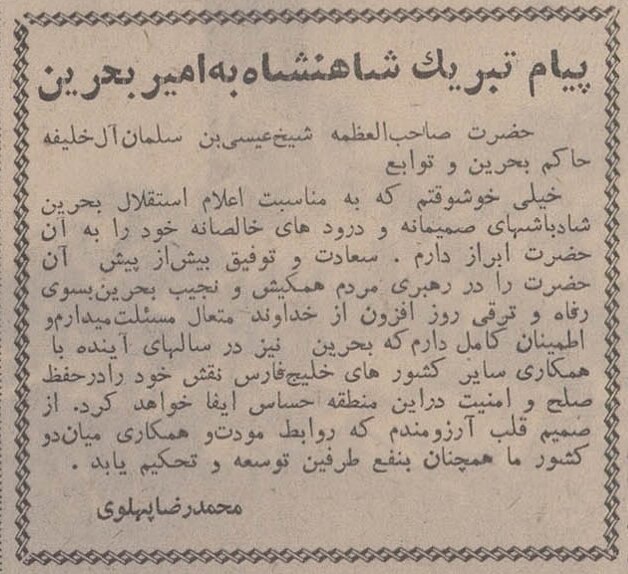 پیام تبریك شاهنشاه به امیر بحرین
حضرت صاحب‌العظمه شیخ‌عیسی‌بن سلمان‌آل‌خلیفه
حاکم بحرین و توابع
خیلی خوشوقتم که به مناسبت اعلام استقلال بحرین
شادباشهای صمیمانه و درود های خالصانه خود را به آن
حضرت ابراز دارم . سعادت و توفیق بیش‌از پیش آن
حضرت را در رهبری مردم همکیش و نجیب بحرین‌بسوی
رفاه و ترقی روز افزون از خداوند متعال مسئلت‌میدارم‌و
اطمینان کامل دارم‌که بحرین نیز در سالهای آینده با
همکاری سایر کشور های خلیج‌فارس نقش خود رادرحفظ
صلح و امنیت دراین منطقه حساس ایفا خواهد کرد. از
صمیم قلب آرزومندم که روابط مودت‌و همکاری میان‌دو
کشور ما همچنان بنفع طرفین توسعه و تحکیم یابد .
محمدرضاپهلوی